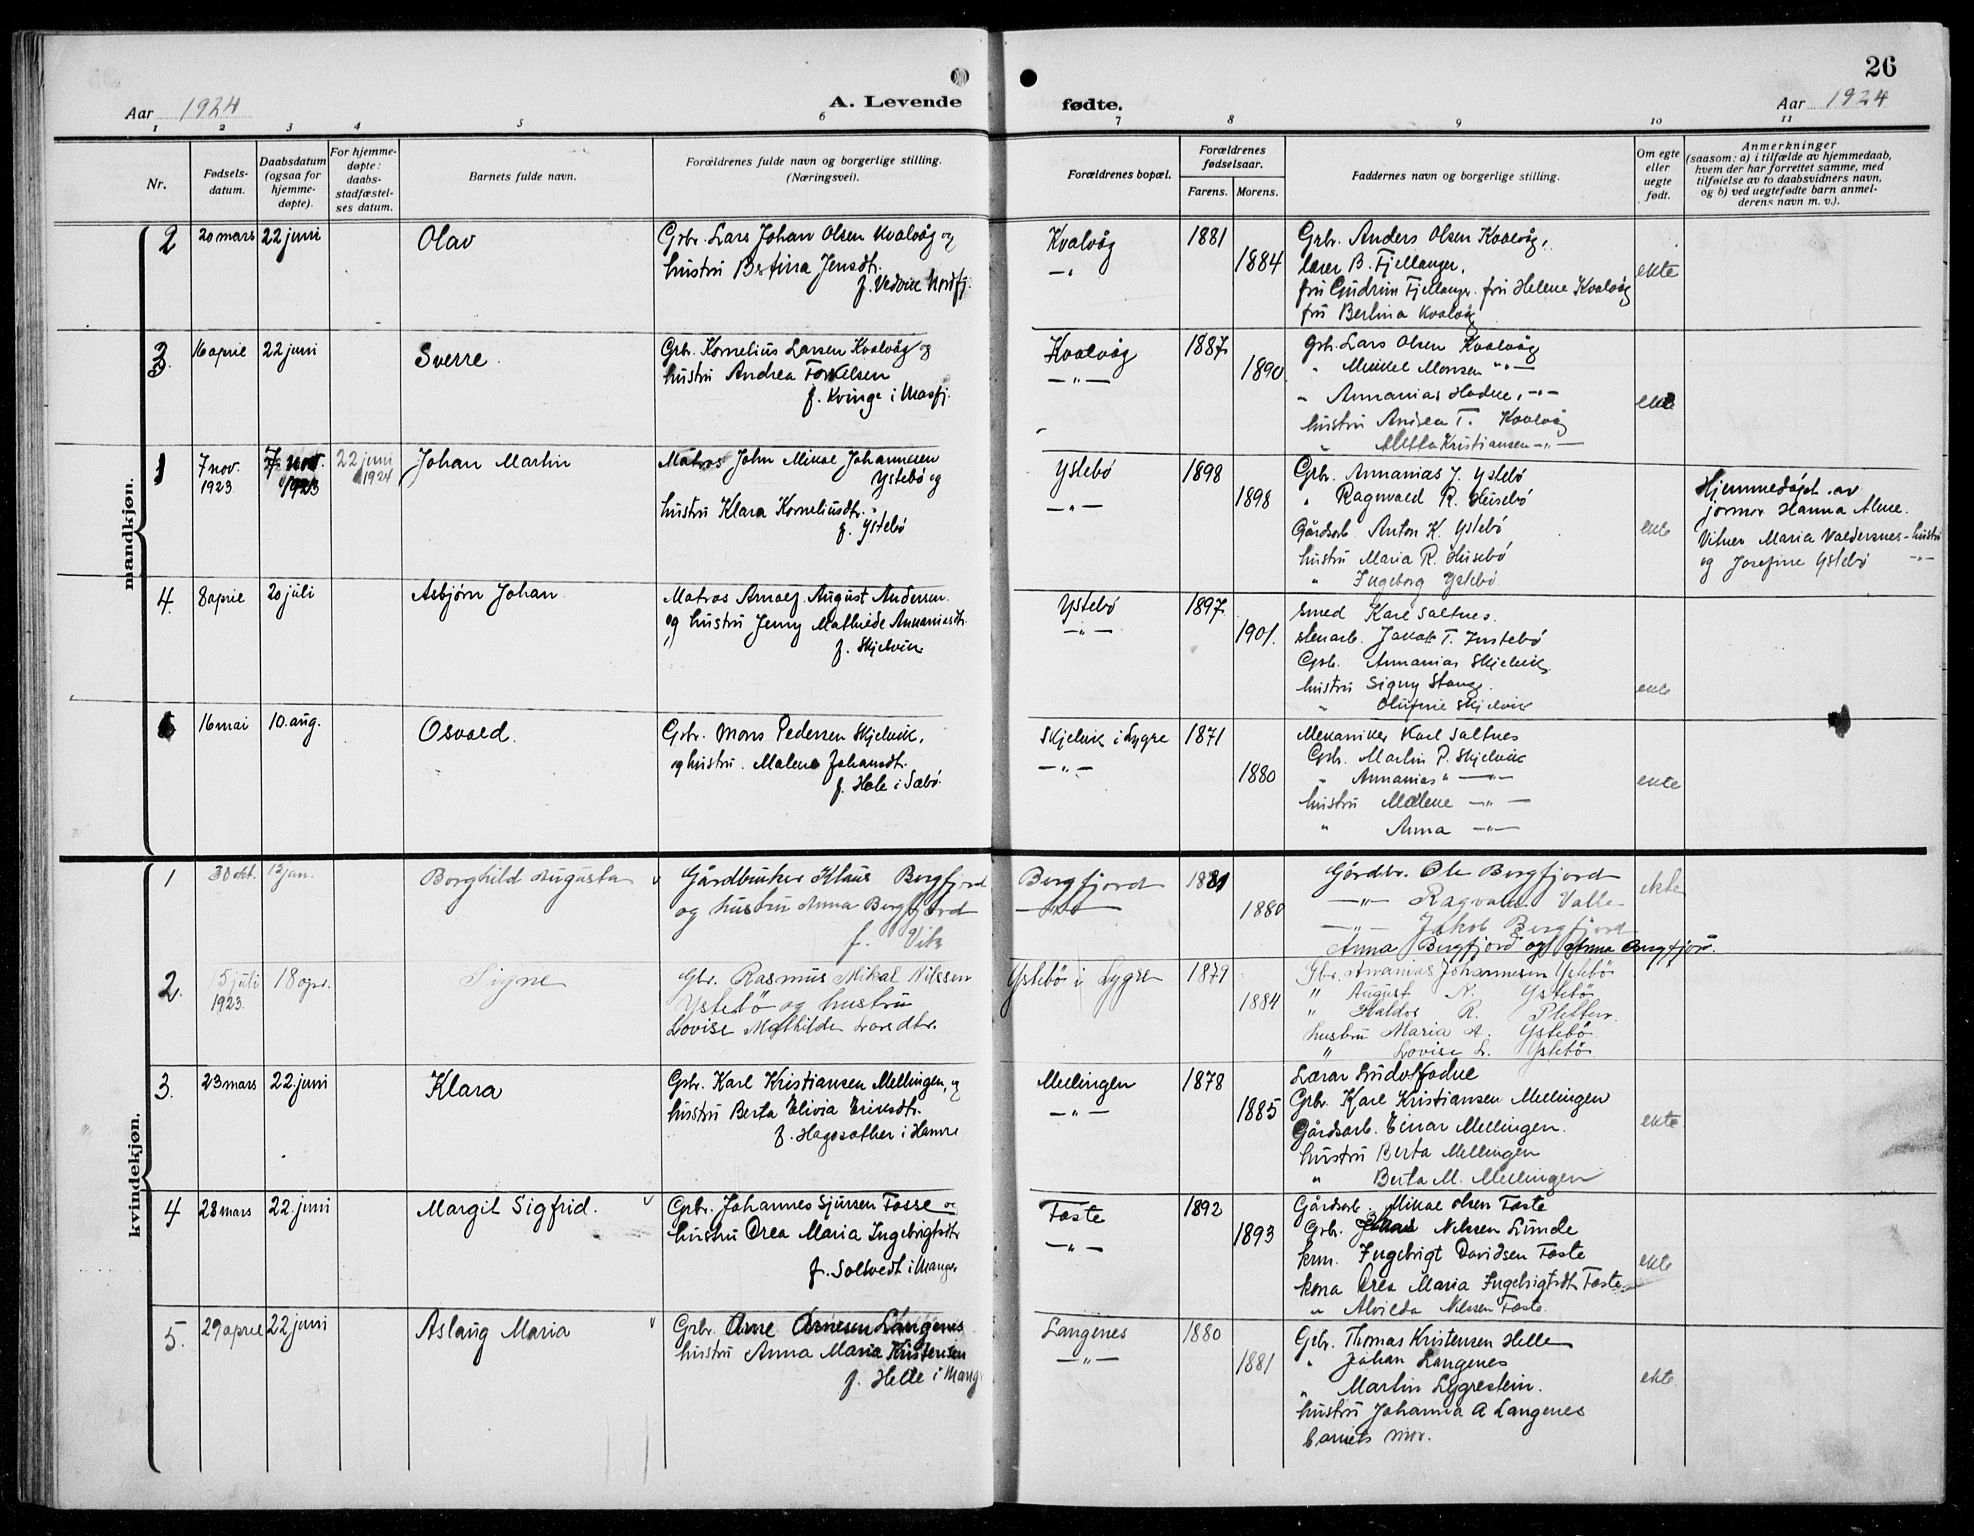 26
Aar 1924
A. Levende
fødte.
Aar 1924
1 2 3 4 5 6 7 8 9 10 11
Nr.
Fødsels-
datum.
Daabsdatum
(ogsaa for
hjemme-
døpte).
For hjemme-
døpte:
daabs-
stadfæstel-
ses datum.
Barnets fulde navn.
Forældrenes fulde navn og borgerlige stilling.
(Næringsvei).
Forældrenes bopæl.
Forældrenes
fødselsaar.
Farens. Morens.
Faddernes navn og borgerlige stilling.
Om egte
eller
uegte
født.
Anmerkninger
(saasom: a) i tilfælde av hjemmedaab,
hvem der har forrettet samme, med
tilføielse av to daabsvidners navn,
og b) ved uegtefødte barn anmel-
derens navn m. v.).
mandkjøn.
2 20 mars 22 juni Olav
Grbr. Lars Johan Olsen Kvalvåg og
hustru Bertina Jensdtr.
f. Vedvik Nordfj.
Kvalvåg
—"—
1881
1884
Grbr. Anders Olsen Kvalvåg,
lærer B. Fjellanger,
fru Gudrun Fjellanger. fru Helene Kvalvåg
fru Bertina Kvalvåg
ekte
3. 16 april 22 juni Sverre.
Grb. Kornelius Larsen Kvalvåg og
hustru Andrea Torkelsen
f. Kvinge i Masfj.
Kvalvåg
—"—
1887
1890
Grb. Lars Olsen Kvalvåg
" Mikkel Monsen —"—
" Annanias Hodne, —"—
hustru Andrea T. Kvalvåg
" Kristiansen —"—
ekte
1 7 nov. 1923. 7 nov. 1923 22 juni 1924 Johan Martin
Matros John Mikal Johannesen
Ystebø og
hustru Klara Korneliusdtr.
f. Ystebø
Ystebø
—"—
1898
1898
Grb. Annanias J. Ystebø
" Ragnvald R. Husebø
Gårdsarb. Anton K. Ystebø
hustru Maria R. Husebø
" Ingeborg Ystebø.
ekte
Hjemmedøpt av
jormor Hanna Alme.
Vitner Maria Valdersnes - hustru
og Josefine Ystebø —"—
4. 8 april 20 juli Asbjørn Johan.
Matros Arnolf August Andersen
og hustru Jenny Mathilde Annaniasdtr.
f. Skjelvik
Ystebø
—"—
1897
1901.
Smed Karl Saltnes.
stenarb. Jakob T. Instebø
Grb. Annanias Skjelvik
hustru Signy Stang.
" Olufine Skjelvik
ekte
5 16 mai 10. aug. Osvald.
Grbr. Mons Pedersen Skjelvik,
og hustru. Malene Johansdtr.
f. Hole i Sæbø.
Skjelvik i Lygre
—"—
1871
1880
Mekaniker Karl Saltnes
Grb. Martin P. Skjelvik
" Annanias " —"—
hustru Malene —"—
" Anna —"—
ekte
kvindekjøn.
1 30 okt. 13 jan. Borghild Augusta
Gårdbruker Klaus Bergfjord
og hustru Anna Bergfjord
f. Vik
Bergfjord
1881
1880
Gårdbr. Ole Bergfjord
—"— Ragvald Valle
—"— Jakob Bergfjord
Anna Bergfjord og Anna Bergfjord.
ekte
2. 15 juli 1923. 18 apr. Signe
Gbr. Rasmus Mikal Nilssen
Ystebö og hustru
Lovise Mathilde Larsdtr.
Ystebö i Lygre
1879
1884
Gbr. Ananias Johannesen Ystebö
" August N. Ystebö
" Haldor R. Pletten.
hustru Maria A. Ystebö
" Lovise L. Ystebö
3. 23 mars 22 juni Klara
Gbr. Karl Kristiansen Mellingen, og
hustru Berta Elivia Eriksdtr.
f. Hagesæther i Hamre
Mellingen
—"—
1878
1885
Lærar Ludolf
Grbr. Karl Kristiansen Mellingen
Gårdsarb. Einar Mellingen.
hustru Berta Mellingen
" Berta M. Mellingen
ekte
4 28 mars 22 juni Margit Sigfrid.
Grbr. Johannes Sjursen Fosse og
hustru Orea Maria Ingebrigtsdtr
f. Soltvedt i Manger
Toste
—"—
1892
1893
Gårdsarb. Mikal Olsen Toste
Grb. Nilssen Lunde
krm. Ingebrigt Davidsen Toste
kona Orea Maria Ingebrigtsdt. Toste
" Alvilda Nilssen Toste.
ekte
5. 29 april 22 juni Aslaug Maria
Grbr. Arne Arnesen Langenes
hustru Anna Maria Kristensen
f. Helle i Mang
Langenes
—"—
1880
1881
Grbr. Thomas Kristensen Helle
" Johan Langenes
" Martin Lygrestein.
hustru Johanna A Langenes
barnets mor.
ekte